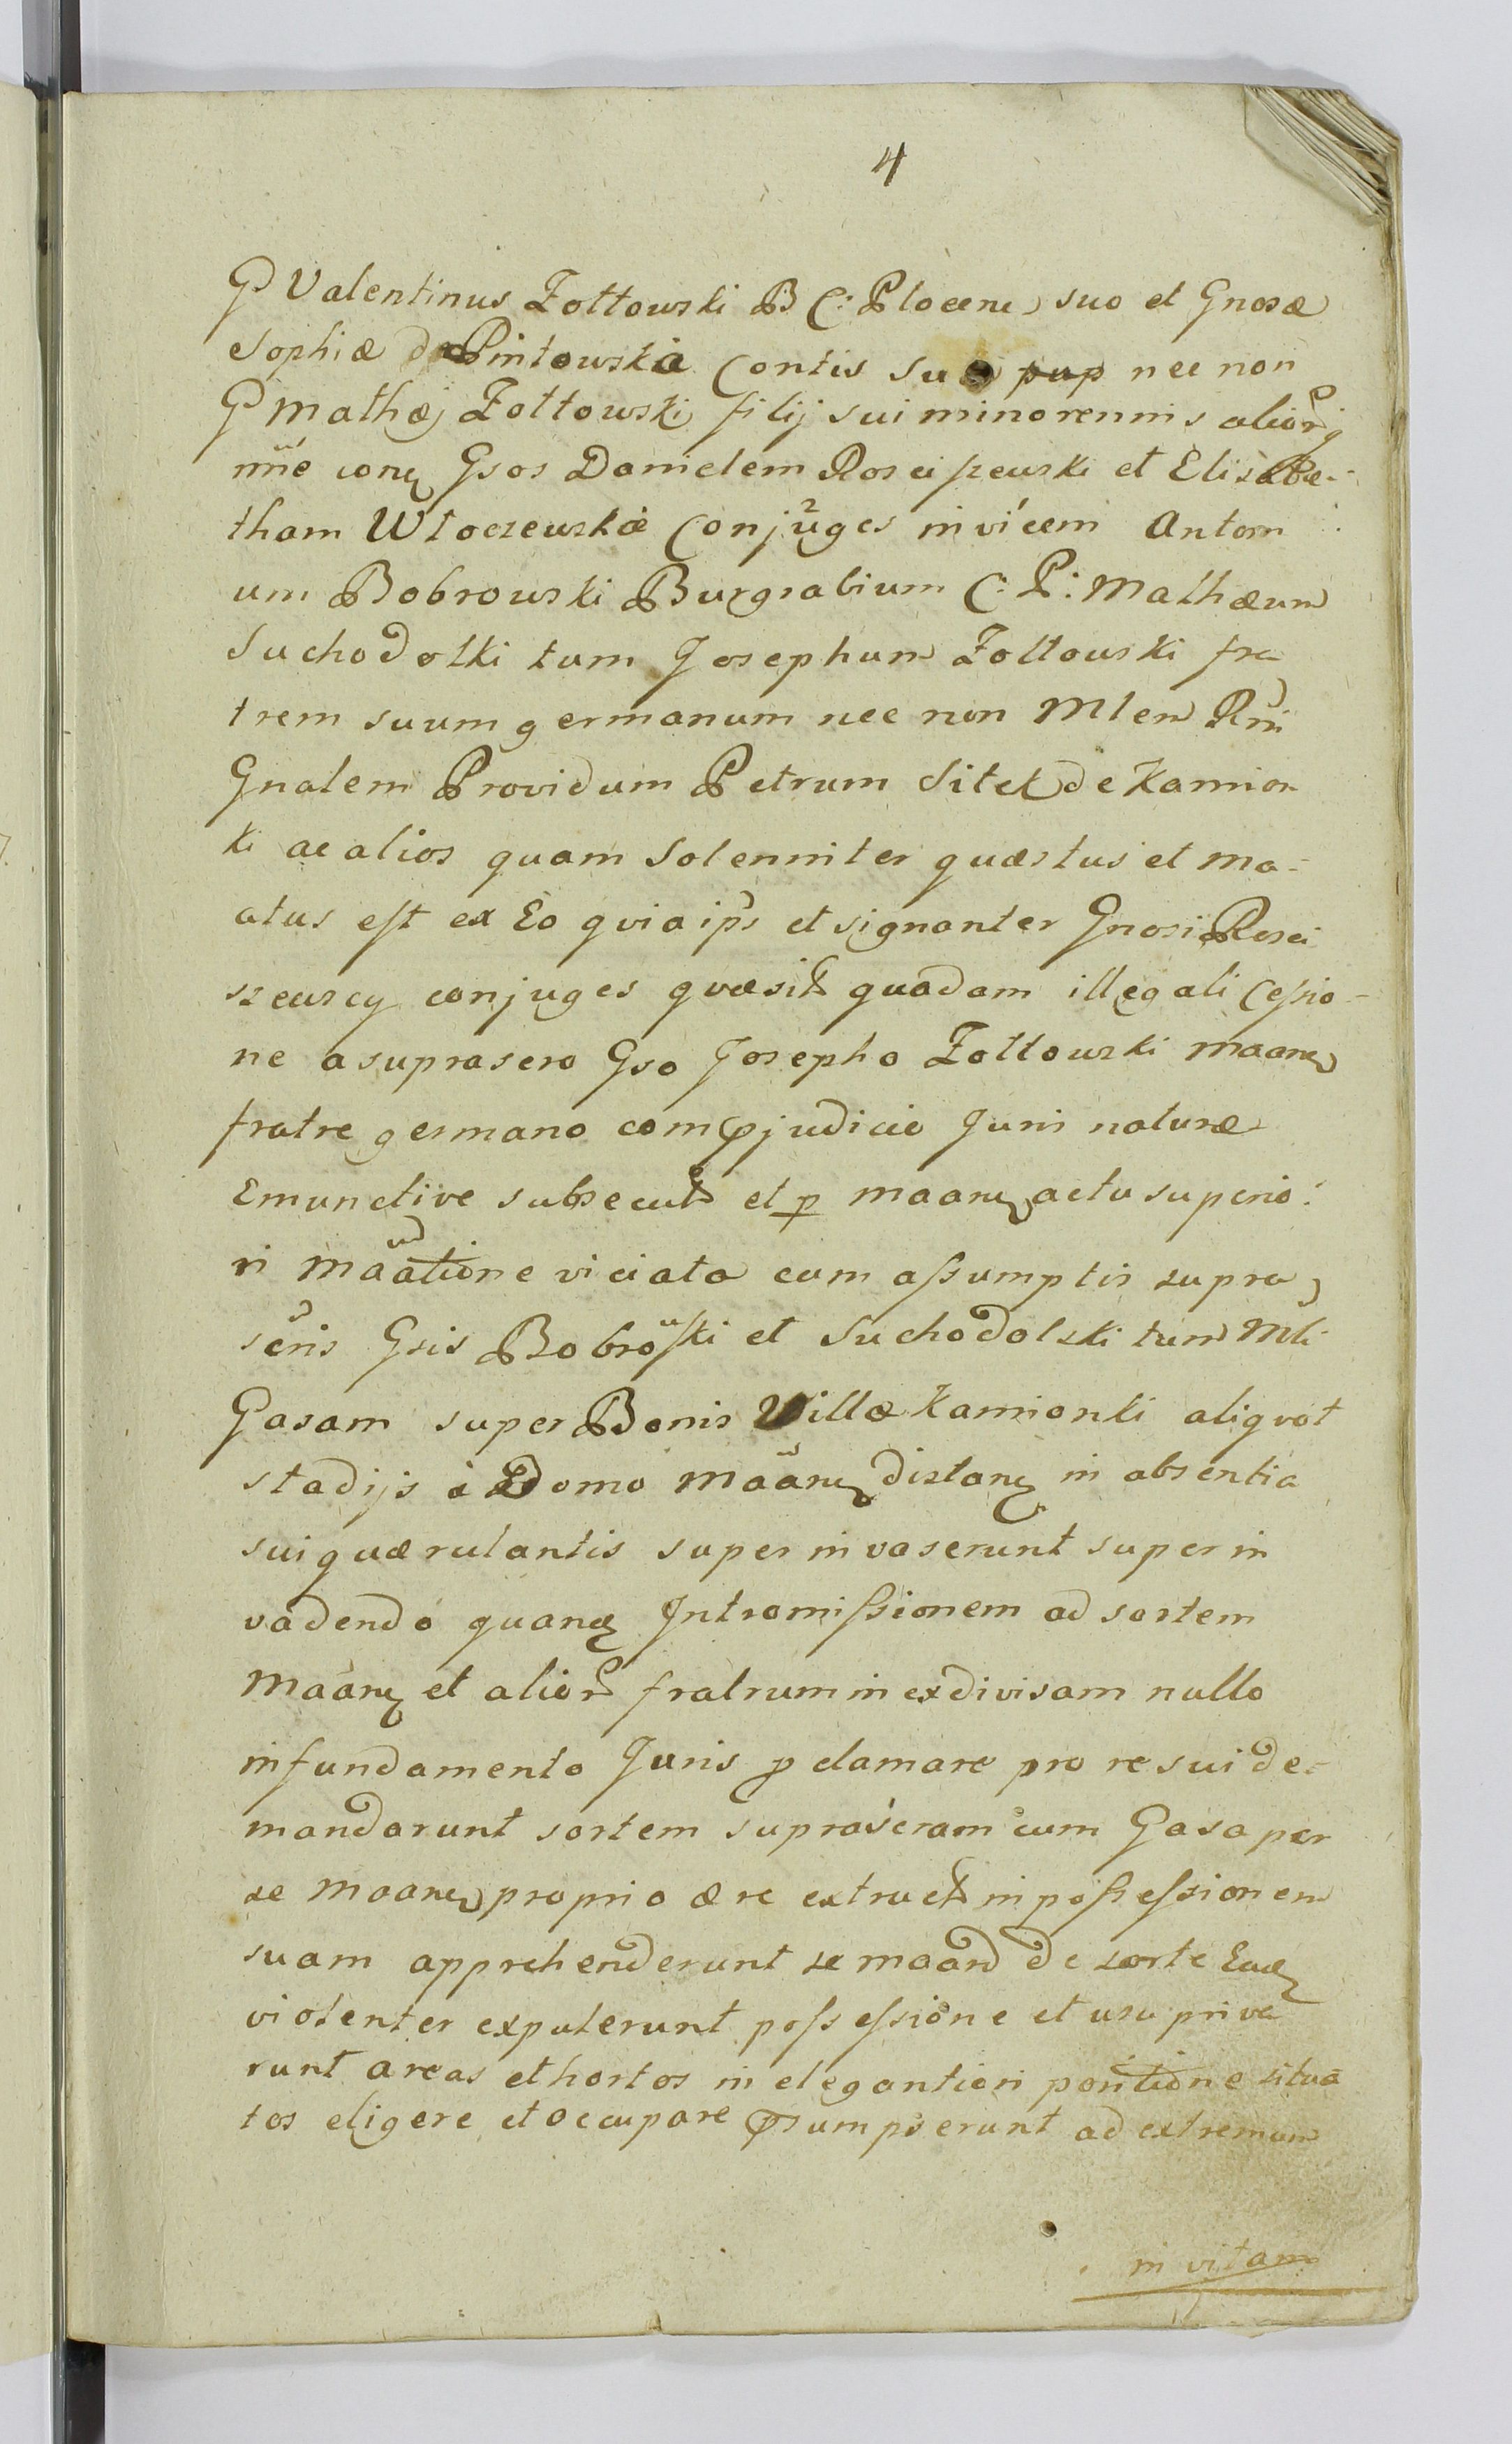 4
G Valentinus Zołtowski B C: Plocene suo et Gnosæ
Sophiæ de Pintowskie Contis suæ nec non
G Mathæj Zołtowski filij sui minorennis aliorq
nne conq Gsos Danielem Rosciszewski et Elisabe-
tham Włoczewskie Conjuges invicem Anton
um Bobrowski Burgrabium C: P: Mathæum
Suchodolki tum Josephum Zoltowski fra
trem suum germanum nec non Mlem Rni
Gnalem Providum Petrum Sitek de Kamion
ki ac alios quam Solenniter quæstus et ma-
atus est ex Eo qvia ips et signanter Gnosi Rosci
szewscy conjuges qvæsit quadam illegali Cessio-
ne a suprasero Gso Josepho Zołtowski maane
fratre germano com pjudicio Juris naturæ
Emunctive subsecut et p maane actu superio:
ri maatione viciata eum assumptis supra
scris Gsis Bobroski et Suchodolski tum Mli
Gasam super Bonis Villæ Kamionki aliqvot
stadijs a Domo maane distane in absentia
sui quærulantis super invaserunt super in
vadendo quane Intromissionem ad sortem
Maane et alior fratrum in exdivisam nullo
in fundamento Juris p clamare pro re sui de-
mandarunt sortem suprascram cum Gasa per
se maane proprio ære extruct in possessionem
suam apprehenderunt se maand de sorte Eadq
violenter expulerunt possessione et usu priva
runt areas et hortos in elegantiori positione situa
tos eligere et occupare psumpserunt ad extremum
in vitam